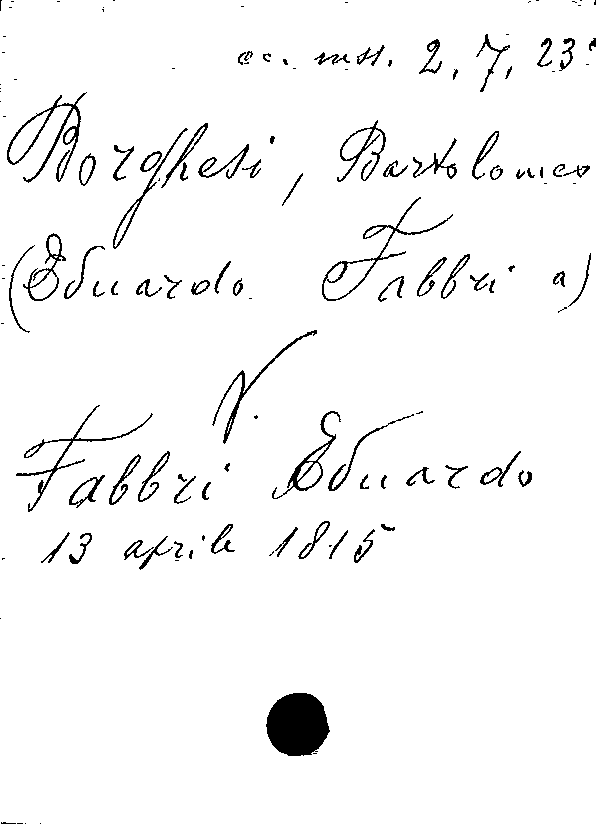 cc. mss. 2. 7. 23
Borghesi, Bartolomeo
(Eduardo Fabbri a)
V.
Fabbri Eduardo
13 aprile 1815